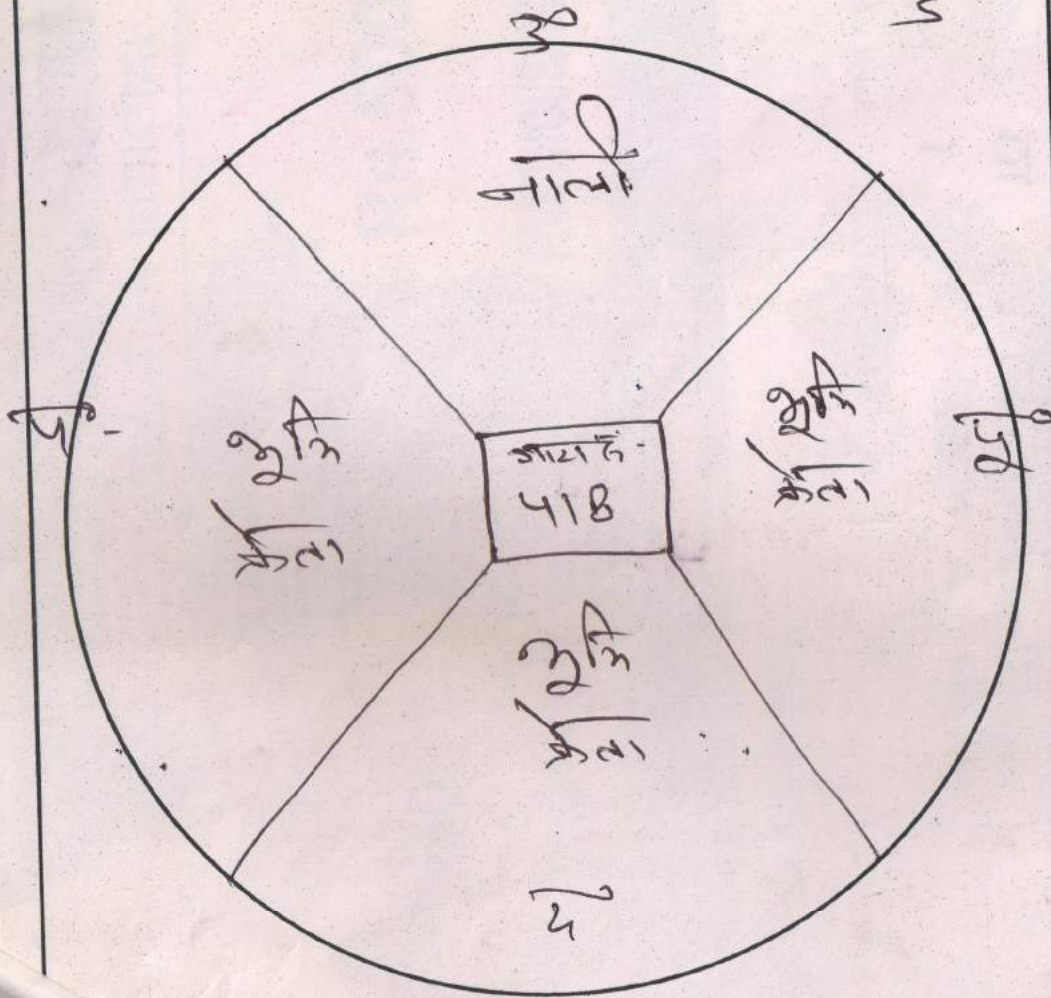 उ
नाली
प
भूमि
क्रेता
आराजी
418
भूमि
क्रेता
पू
भूमि
क्रेता
द